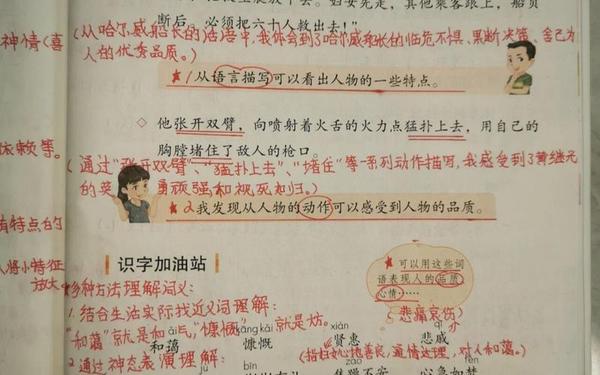 断后。必须把六十人救出去！”
神情（喜
（从哈尔威船长的话语中，我体会到了哈尔威船长的临危不惧、果断决策、舍己为
人的优秀品质。）
★1从语言描写可以看出人物的一些特点。
◇ 他张开双臂，向喷射着火舌的火力点猛扑上去，用自己的
胸膛堵住了敌人的枪口。
依赖等。
（通过“张开双臂”、“猛扑上去”、“堵住”等一系列动作描写，我感受到了黄继光
的英勇顽强和视死如归。）
★2我发现从人物的动作可以感受到人物的品质。
有特点的
人将小特征
放大
识字加油站
★可以用这些词
语表现人的品质、
心情……
多种方法理解词义：
1.结合生活实际找近义词理解：
（悲痛哀伤）
“和蔼”就是和气，“慷慨”就是大方。
ǎi kāng kǎi xián
和蔼 慷慨 贤惠 悲戚
2.通过神态表演理解：